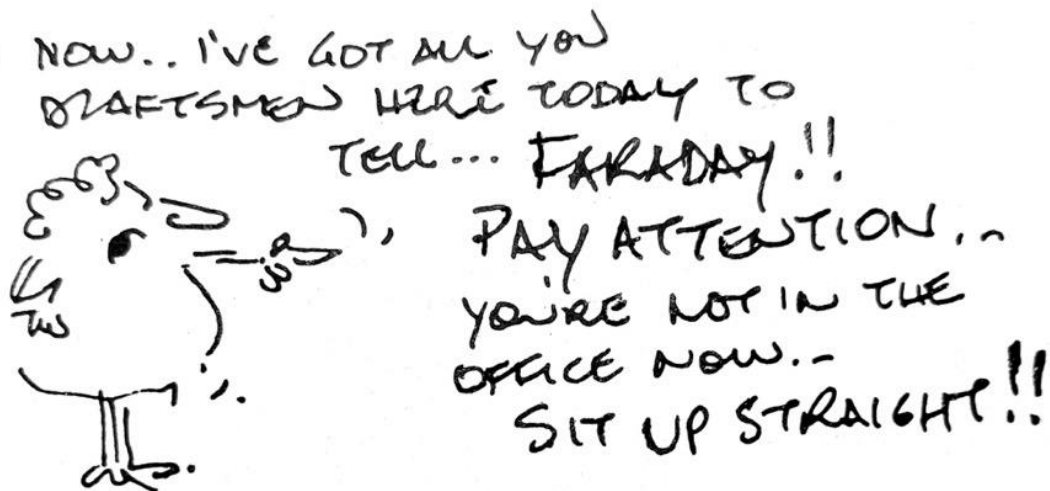 NOW.. I'VE GOT ALL YOU
DRAFTSMEN HERE TODAY TO
TELL... FARADAY!!
PAY ATTENTION..
YOU'RE NOT IN THE
OFFICE NOW..
SIT UP STRAIGHT!!